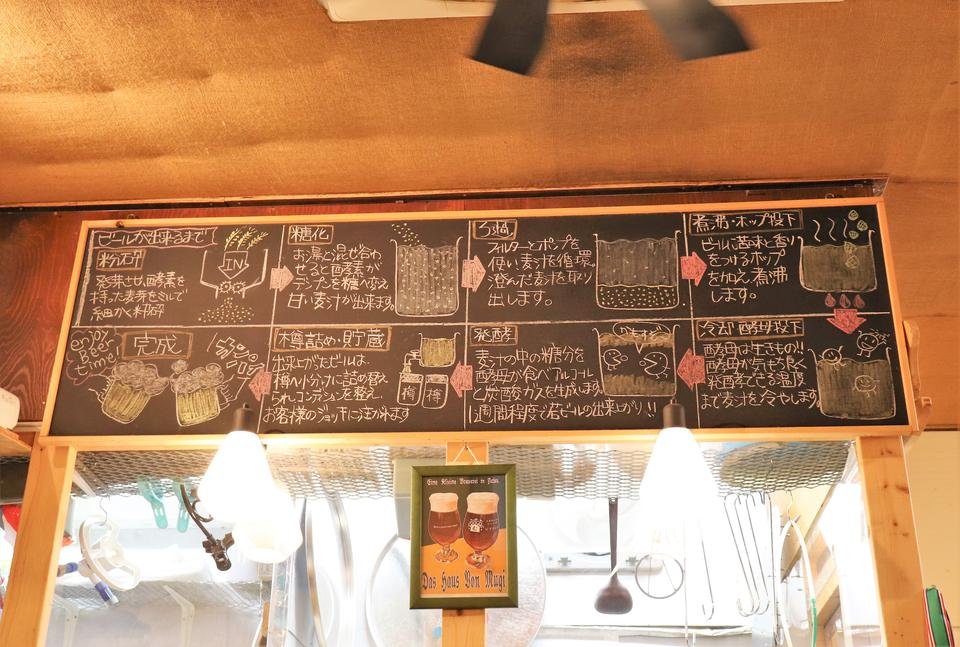 ビールが出来るまで
粉砕
発芽させ、酵素を
持った麦芽をミルで
細かく粉砕
IN
糖化
お湯と混ぜ合わ
せると酵素が
デンプンを糖へ変え
甘い麦汁が出来ます。
ろ過
フィルターとポンプを
使い麦汁を循環。
澄んだ麦汁を取り
出します。
煮沸・ホップ投下
ビールに苦味と香り
をつけるホップ
を加え、煮沸
します。
冷却 酵母投下
酵母は生きもの!!
酵母が気持ち良く
発酵できる温度
まで麦汁を冷やします。
発酵
麦汁の中の糖分を
酵母が食べアルコール
と炭酸ガスを生成します。
1週間程度で若ビールの出来上がり!!
かもすぞ
樽詰め・貯蔵
出来上がたビールは、
樽へ小分けに詰め替え
られコンデションを整え、
お客様のジョッキに注がれます
樽
樽
完成
enjoy
Beer
time!
Eine Kleine Brauerei in
Das Haus Von Mugi